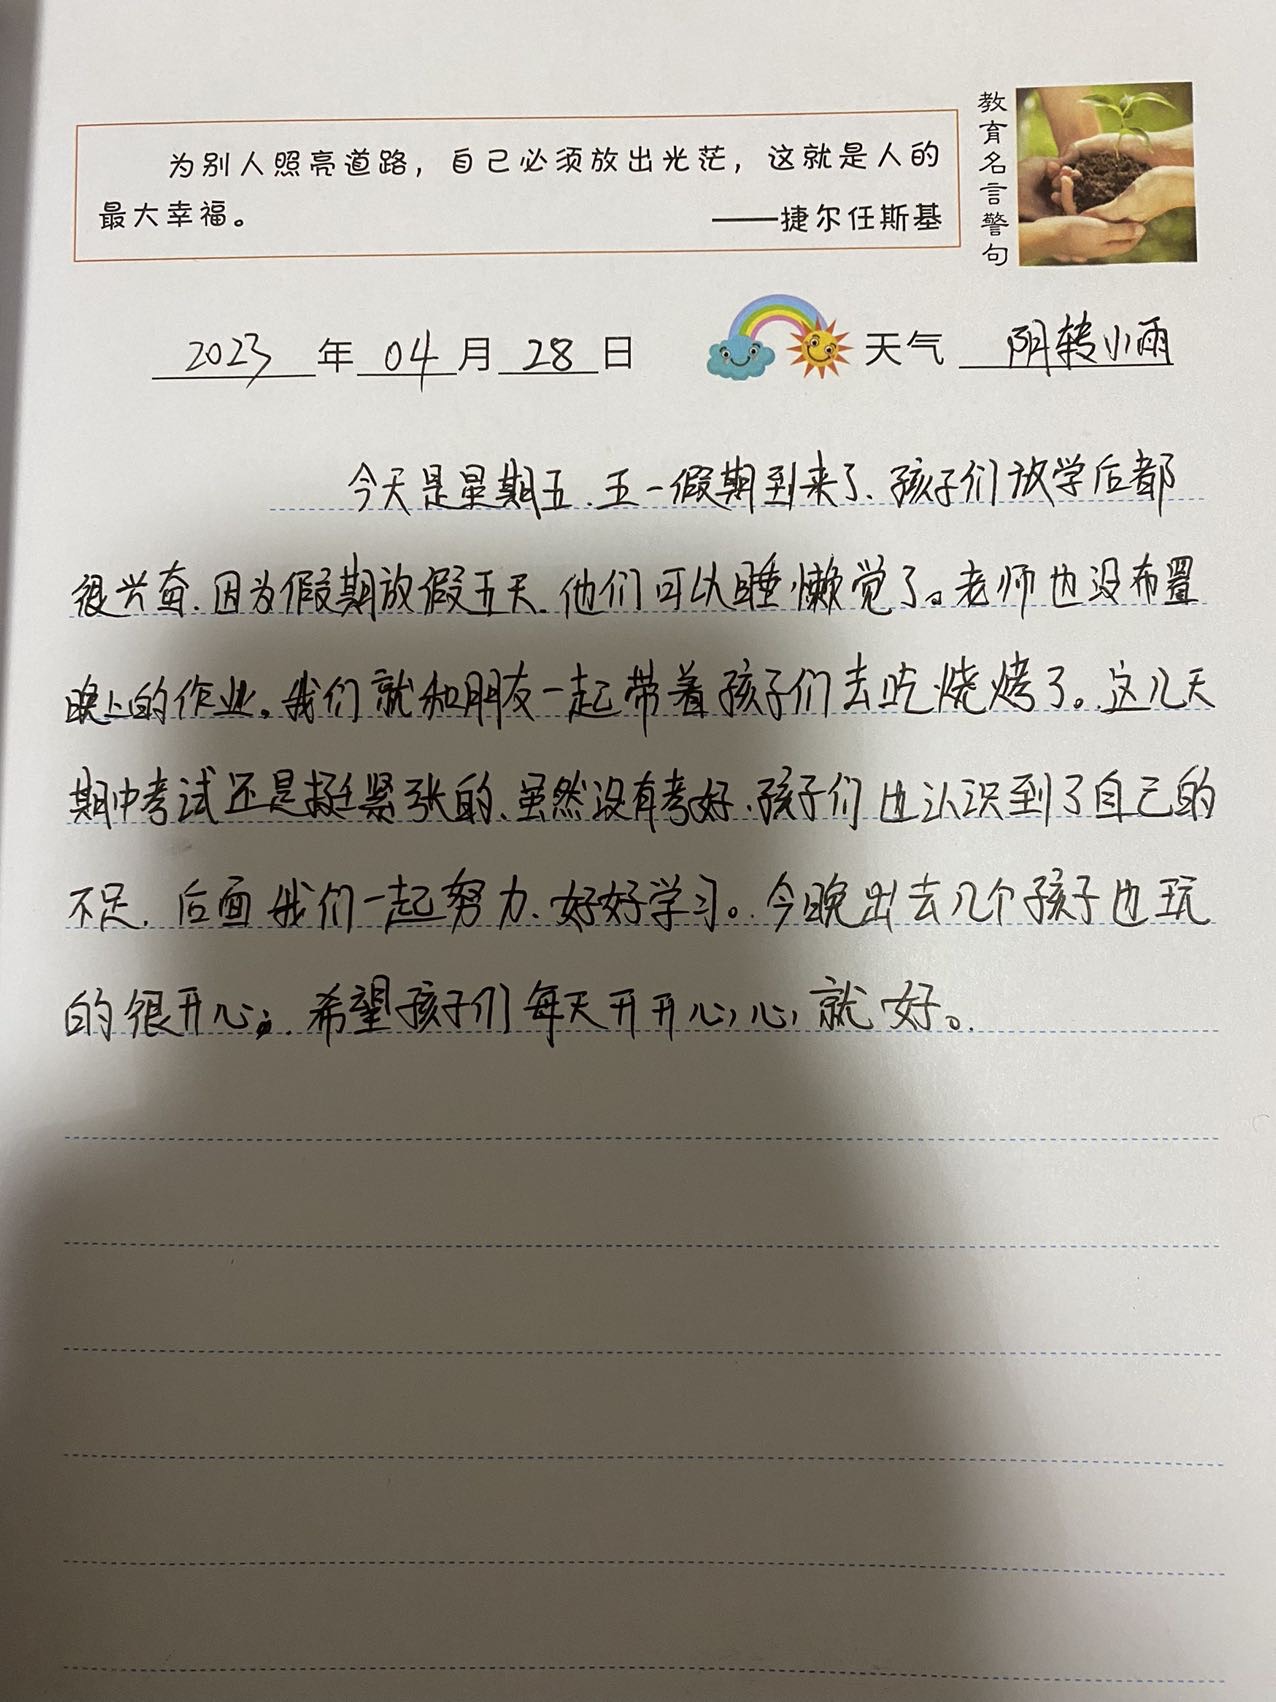 为别人照亮道路，自己必须放出光茫，这就是人的
最大幸福。 ——捷尔任斯基
教育名言警句
2023年04月28日 天气 阴转小雨
今天是星期五、五一假期到来了、孩子们放学后都
很兴奋、因为假期放假五天、他们可以睡懒觉了。老师也没布置
晚上的作业。我们就和朋友一起带着孩子们去吃烧烤了。这几天
期中考试还是挺紧张的、虽然没有考好、孩子们也认识到了自己的
不足、后面我们一起努力、好好学习。今晚出去几个孩子也玩
的很开心。希望孩子们每天开开心心就好。